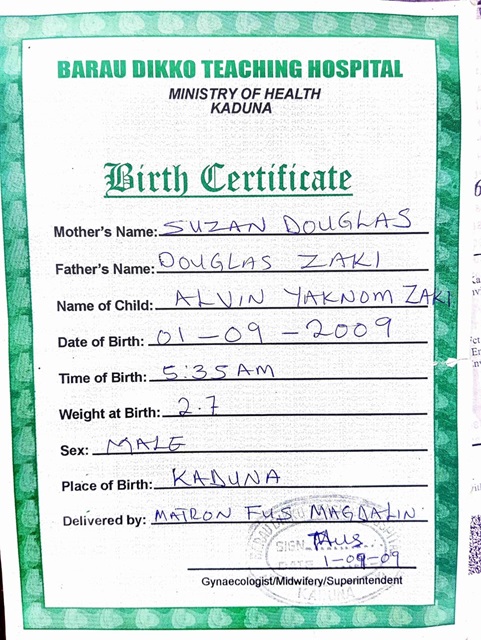 BARAU DIKKO TEACHING HOSPITAL
MINISTRY OF HEALTH
KADUNA
Birth Certificate
Mother's Name: SUZAN DOUGLAS
Father's Name: DOUGLAS ZAKI
Name of Child: ALVIN YAKNOM ZAKI
Date of Birth: 01-09-2009
Time of Birth: 5:35AM
Weight at Birth: 2.7
Sex: MALE
Place of Birth: KADUNA
Delivered by: MATRON FUS MAGDALIN
SIGN
DATE 1-09-09
KADUNA
Gynaecologist/Midwifery/Superintendent